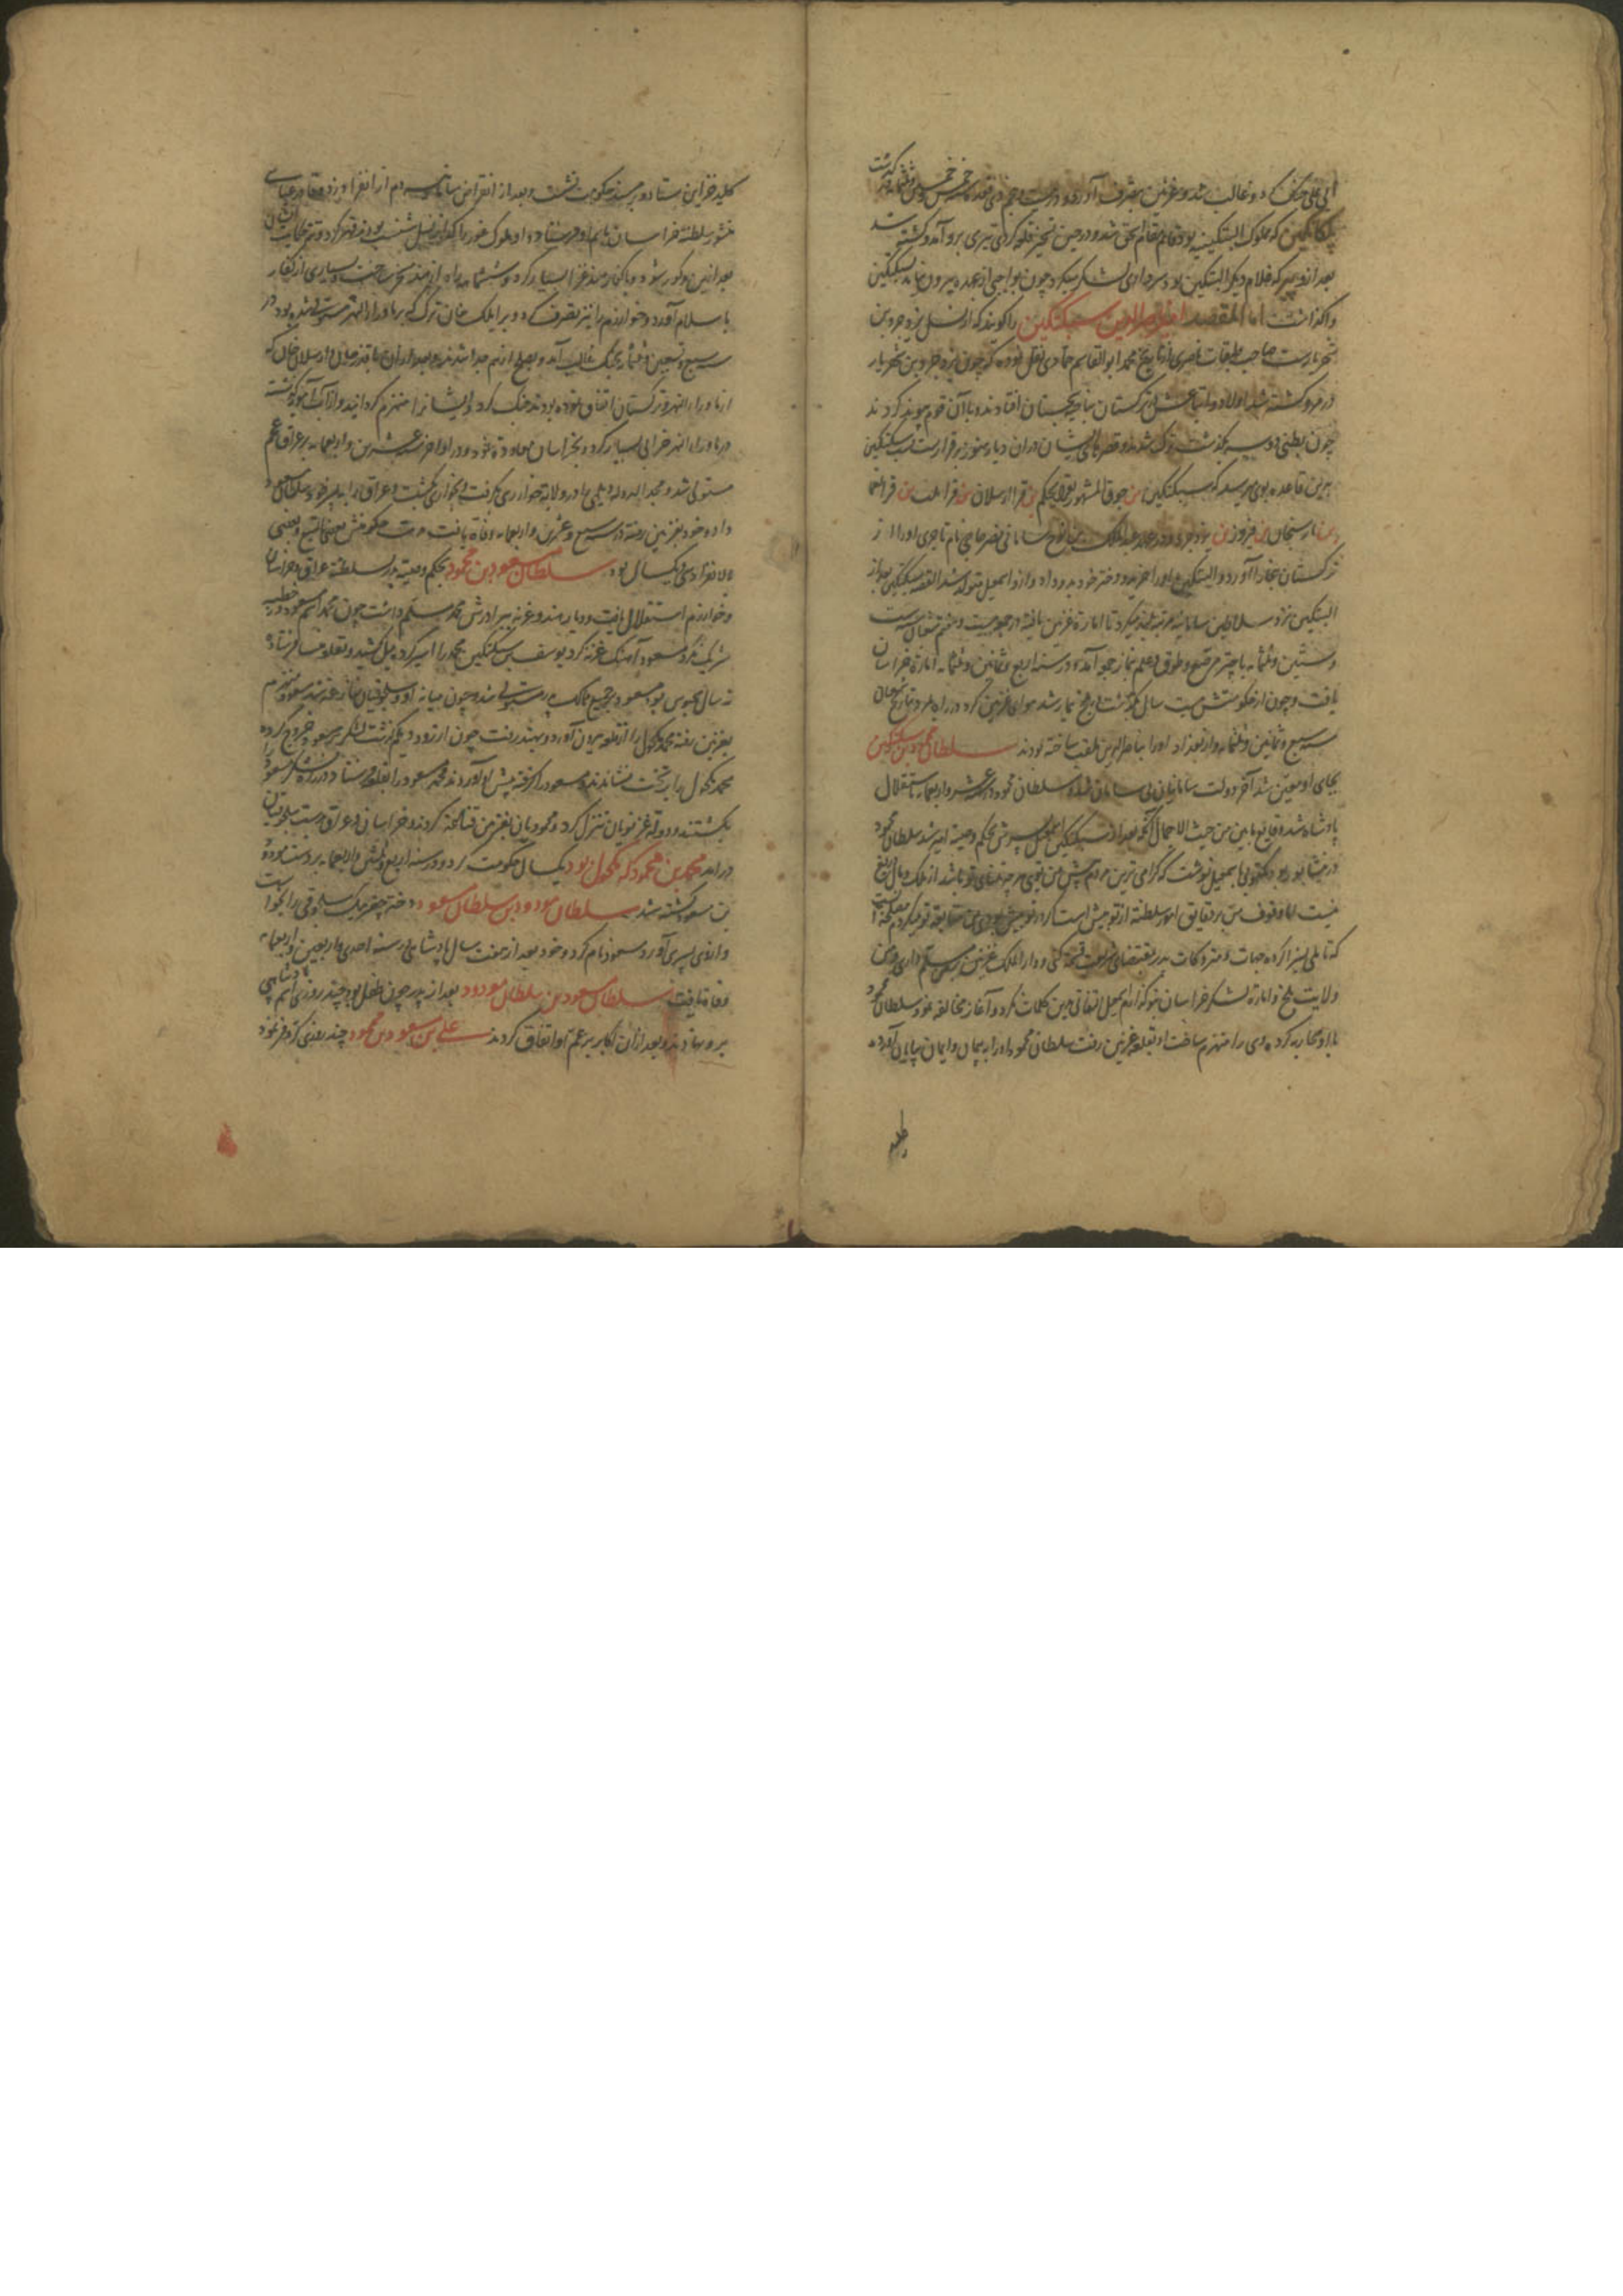 ابی علی جنگ کرد و غالب شد و غزنین بتصرف آورد و در بیست و پنجم ذی قعده سنه خمس و خمسین و ثلثمایه در گذشت
بلکاتکین که مملوک البتکین بود قایم مقام اسحق شد و در حین تسخیر قلعه گردیز تیری برو آمد و کشته شد
بعد ازو پیری که غلام دیگر البتکین بود سرداری لشکر میکرد چون بواجبی از عهده بیرون نیامد بسبکتکین
واگذاشت اما المقصد امیر ناصرالدین سبکتکین را گویند که از نسل یزدجرد بن
شهریارست صاحب طبقات ناصری از تاریخ محمد ابو القاسم حمادی نقل نموده که چون یزدجرد بن شهریار
در مرو کشته شد اولاد و اتباعش بترکستان افتادند و با آن قوم پیوند کردند
چون بطنی دو سه بگذشت ترک شدند و قصرهای ایشان در آن دیار هنوز برقرارست نسب سبکتکین
برین قاعده بوی میرسد که سبکتکین بن جوق المشهور بقرابجکم بن قرا ارسلان بن قراملت بن قرانعمان
بن فیروز بن یزدجرد و در عهد عبدالملک بن نوح سامانی نصر حاجی نام تاجری او را از
ترکستان ببخارا آورد و البتکین او را خرید و دختر خود بدو داد و ازو اسمعیل متولد شد القصه سبکتکین بعد از
البتکین نزد سلاطین سامانیه مرتبه بلند میکرد تا امارة غزنین یافته در جمعه بیست و هفتم شعبان سنه ست
و ستین و ثلثمایه با چتر مرصع و طوق و علم بنماز جمعه آمد و در سنه اربع و ثمانین و ثلثمایه امارة خراسان
یافت و چون از حکومتش بیست سال بگذشت در بلخ بیمار شد هوای غزنین کرد در راه بمرد بتاریخ شعبان
سنه سبع و ثمانین و ثلثمایه و از بغداد او را ناصرالدین لقب ساخته بودند سلطان محمود بن سبکتکین
بجای او معین شد آخر دولت سامانیان بی سامان شد و سلطان محمود در عشر و اربعمایه باستقلال
پادشاه شد وقایع مابین من حیث الاجمال آنکه بعد از سبکتکین اسمعیل پسرش بحکم وصیت امیر شد سلطان محمود
در نیشابور بود مکتوبی باسمعیل نوشت که گرامی ترین مردم پیش من تویی هر چه تمنای تو باشد از ملک و مال دریغ
نیست اما وقوف من بر دقایق امور سلطنة از تو بیش است
که تاملی بسزا کرده جهات و متروکات پدر بمقتضای شریعت قسمة کنی و دار الملک غزنین بمن مسلم داری و من
ولایت بلخ و امارة لشکر خراسان بتو گذارم اسمعیل التفاتی بدین کلمات نکرد و آغاز مخالفه نمود سلطان محمود
با او محاربه کرده وی را منهزم ساخت او بقلعه غزنین رفت سلطان محمود او را به پیمان و ایمان پایان آورده
کلید خزاین ستاد و بر مسند حکومت نشست و بعد از انقراض سامانیه دم از انفراد زد و قادر عباسی
منشور سلطنة خراسان بنام او فرستاد و او ملوک غور را که از نسل شنسب بودند قهر کرد
بعد ازین مذکور شود و با کفار هند غزا بسیار کرد و ششماهه راه از هند مسخر ساخت و بسیاری از کفار
باسلام آورد و خوارزم را نیز بتصرف کرد و بر ایلک خان ترک که بر ماوراءالنهر مستولی شده بود در
سنه سبع و تسعین و ثلثمایه بجنگ غالب آمد و بصلح از هم جدا شدند و بعد ازان با قدر خان و ارسلان خان که
از ماوراءالنهر و ترکستان اتفاق نموده بودند جنگ کرد و ایشانرا منهزم گردانید و از آب آمویه گذشته
در ماوراءالنهر خرابی بسیار کرد و بخراسان معاودة نمود و در اواخر عشرین و اربعمایه بر عراق عجم
مستولی شد و مجدالدوله دیلمی را در ولایة خوار ری گرفت و بخواری بکشت و عراق را به پسر خود سلطان مسعود
داد و خود بغزنین رفته در سنه سبع و عشرین و اربعمایه وفاة یافت
بالانفراد سی و یکسال بود سلطان مسعود بن محمود بحکم وصیة پدر سلطنة عراق و خراسان
و خوارزم استقلال یافت و دیار هند و غزنه ببرادرش محمد مسلم داشت چون محمد اسم مسعود در خطبه
شریک نکرد مسعود آهنگ غزنه کرد یوسف بن سبکتکین محمد را اسیر کرده میل کشید و بقلعه فرستاد
نه سال محبوس بود مسعود بر جمیع ممالک پدر مستولی شد و چون میانه او و سلجوقیان منازعه شد مسعود منهزم
بغزنین رفته محمد مکحول را از قلعه بیرون آورد و بهند رفت چون از رود جیلم گذشت لشکر بر مسعود خروج کرده
محمد مکحول را بر تخت نشاندند و مسعود را گرفته پیش او آوردند محمد مسعود را بقلعه فرستاد و در راه لشکر مسعود را
بکشتند و دولة غزنویان تنزل کرد و محمودیان بغزنین قناعت کردند و خراسان و عراق بدست سلجوقیان
در آمد محمد بن محمود که مکحول بود یکسال حکومت کرد و در سنه اربع و ثلثین و اربعمایه بر دست مودود
بن مسعود کشته شد سلطان مودود بن سلطان مسعود دختر چغربیک سلجوقی را بخواست
و ازوی پسری آورد مسعود نام کرد و خود بعد از هفت سال پادشاهی در سنه احدی و اربعین و اربعمایه
وفاة یافت سلطان مسعود بن سلطان مودود بعد از پدر چون طفل بود چند روزی اسم پادشاهی
برو نهادند و بعد از آن اکابر بر عم او اتفاق کردند علی بن مسعود بن محمود چند روزی کروفر نمود